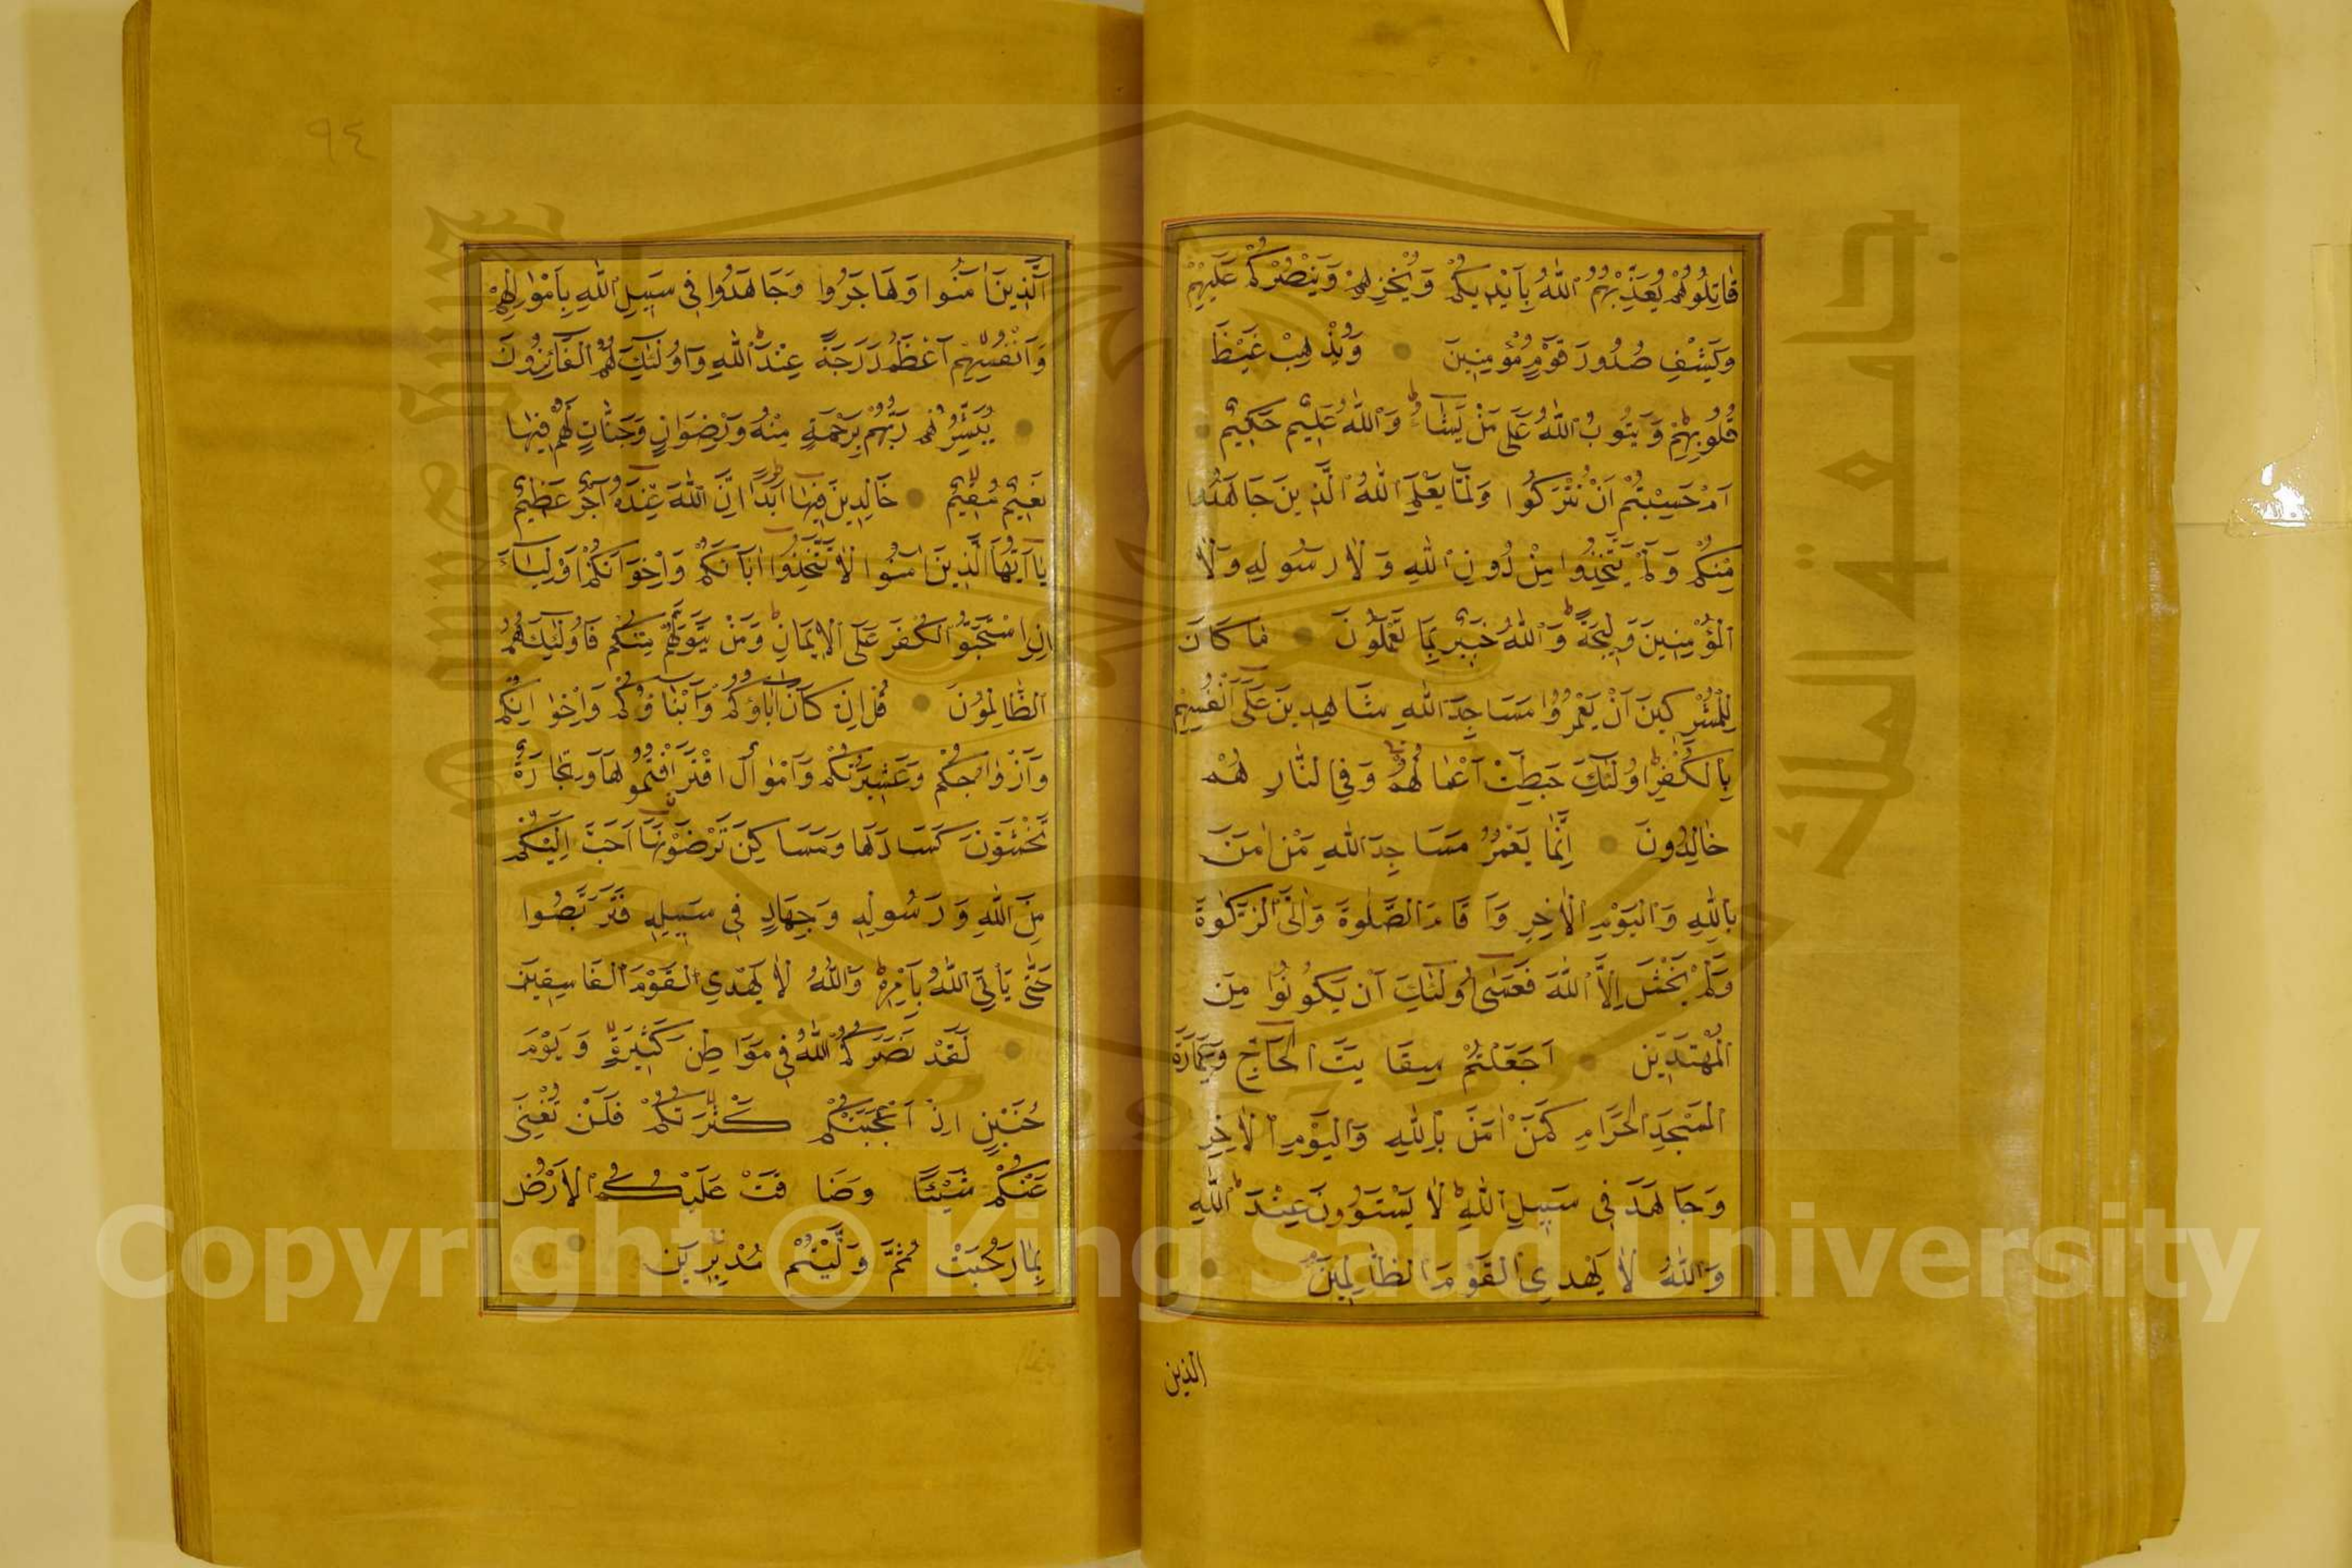 قَاتِلُوهُمْ يُعَذِّبْهُمُ اللّٰهُ بِاَيْدِيكُمْ وَيُخْزِهِمْ وَيَنْصُرْكُمْ عَلَيْهِمْ
وَيَشْفِ صُدُورَ قَوْمٍ مُؤْمِنِينَ وَيُذْهِبْ غَيْظَ
قُلُوبِهِمْ وَيَتُوبُ اللّٰهُ عَلَى مَنْ يَشَاءُ وَاللّٰهُ عَلِيمٌ حَكِيمٌ
اَمْ حَسِبْتُمْ اَنْ تُتْرَكُوا وَلَمَّا يَعْلَمِ اللّٰهُ الَّذِينَ جَاهَدُوا
مِنْكُمْ وَلَمْ يَتَّخِذُوا مِنْ دُونِ اللّٰهِ وَلَا رَسُولِهِ وَلَا
الْمُؤْمِنِينَ وَلِيجَةً وَاللّٰهُ خَبِيرٌ بِمَا تَعْمَلُونَ مَا كَانَ
لِلْمُشْرِكِينَ اَنْ يَعْمُرُوا مَسَاجِدَ اللّٰهِ شَاهِدِينَ عَلَى اَنْفُسِهِمْ
بِالْكُفْرِ اُولٰئِكَ حَبِطَتْ اَعْمَالُهُمْ وَفِي النَّارِ هُمْ
خَالِدُونَ اِنَّمَا يَعْمُرُ مَسَاجِدَ اللّٰهِ مَنْ اٰمَنَ
بِاللّٰهِ وَالْيَوْمِ الْاٰخِرِ وَاَقَامَ الصَّلٰوةَ وَاٰتَى الزَّكٰوةَ
وَلَمْ يَخْشَ اِلَّا اللّٰهَ فَعَسٰى اُولٰئِكَ اَنْ يَكُونُوا مِنَ
الْمُهْتَدِينَ اَجَعَلْتُمْ سِقَايَةَ الْحَاجِّ وَعِمَارَةَ
الْمَسْجِدِ الْحَرَامِ كَمَنْ اٰمَنَ بِاللّٰهِ وَالْيَوْمِ الْاٰخِرِ
وَجَاهَدَ فِي سَبِيلِ اللّٰهِ لَا يَسْتَوُونَ عِنْدَ اللّٰهِ
وَاللّٰهُ لَا يَهْدِي الْقَوْمَ الظَّالِمِينَ
الذين
٩٤
اَلَّذِينَ اٰمَنُوا وَهَاجَرُوا وَجَاهَدُوا فِي سَبِيلِ اللّٰهِ بِاَمْوَالِهِمْ
وَاَنْفُسِهِمْ اَعْظَمُ دَرَجَةً عِنْدَ اللّٰهِ وَاُولٰئِكَ هُمُ الْفَائِزُونَ
يُبَشِّرُهُمْ رَبُّهُمْ بِرَحْمَةٍ مِنْهُ وَرِضْوَانٍ وَجَنَّاتٍ لَهُمْ فِيهَا
نَعِيمٌ مُقِيمٌ خَالِدِينَ فِيهَا اَبَدًا اِنَّ اللّٰهَ عِنْدَهُ اَجْرٌ عَظِيمٌ
يَا اَيُّهَا الَّذِينَ اٰمَنُوا لَا تَتَّخِذُوا اٰبَاءَكُمْ وَاِخْوَانَكُمْ اَوْلِيَاءَ
اِنِ اسْتَحَبُّوا الْكُفْرَ عَلَى الْاِيمَانِ وَمَنْ يَتَوَلَّهُمْ مِنْكُمْ فَاُولٰئِكَ هُمُ
الظَّالِمُونَ قُلْ اِنْ كَانَ اٰبَاؤُكُمْ وَاَبْنَاؤُكُمْ وَاِخْوَانُكُمْ
وَاَزْوَاجُكُمْ وَعَشِيرَتُكُمْ وَاَمْوَالٌ اقْتَرَفْتُمُوهَا وَتِجَارَةٌ
تَخْشَوْنَ كَسَادَهَا وَمَسَاكِنُ تَرْضَوْنَهَا اَحَبَّ اِلَيْكُمْ
مِنَ اللّٰهِ وَرَسُولِهِ وَجِهَادٍ فِي سَبِيلِهِ فَتَرَبَّصُوا
حَتّٰى يَاْتِيَ اللّٰهُ بِاَمْرِهِ وَاللّٰهُ لَا يَهْدِي الْقَوْمَ الْفَاسِقِينَ
لَقَدْ نَصَرَكُمُ اللّٰهُ فِي مَوَاطِنَ كَثِيرَةٍ وَيَوْمَ
حُنَيْنٍ اِذْ اَعْجَبَتْكُمْ كَثْرَتُكُمْ فَلَنْ تُغْنِيَ
عَنْكُمْ شَيْئًا وَضَاقَتْ عَلَيْكُمُ الْاَرْضُ
بِمَا رَحُبَتْ ثُمَّ وَلَّيْتُمْ مُدْبِرِينَ
جامعة الملك سعود
King Saud University
1957
Copyright © King Saud University